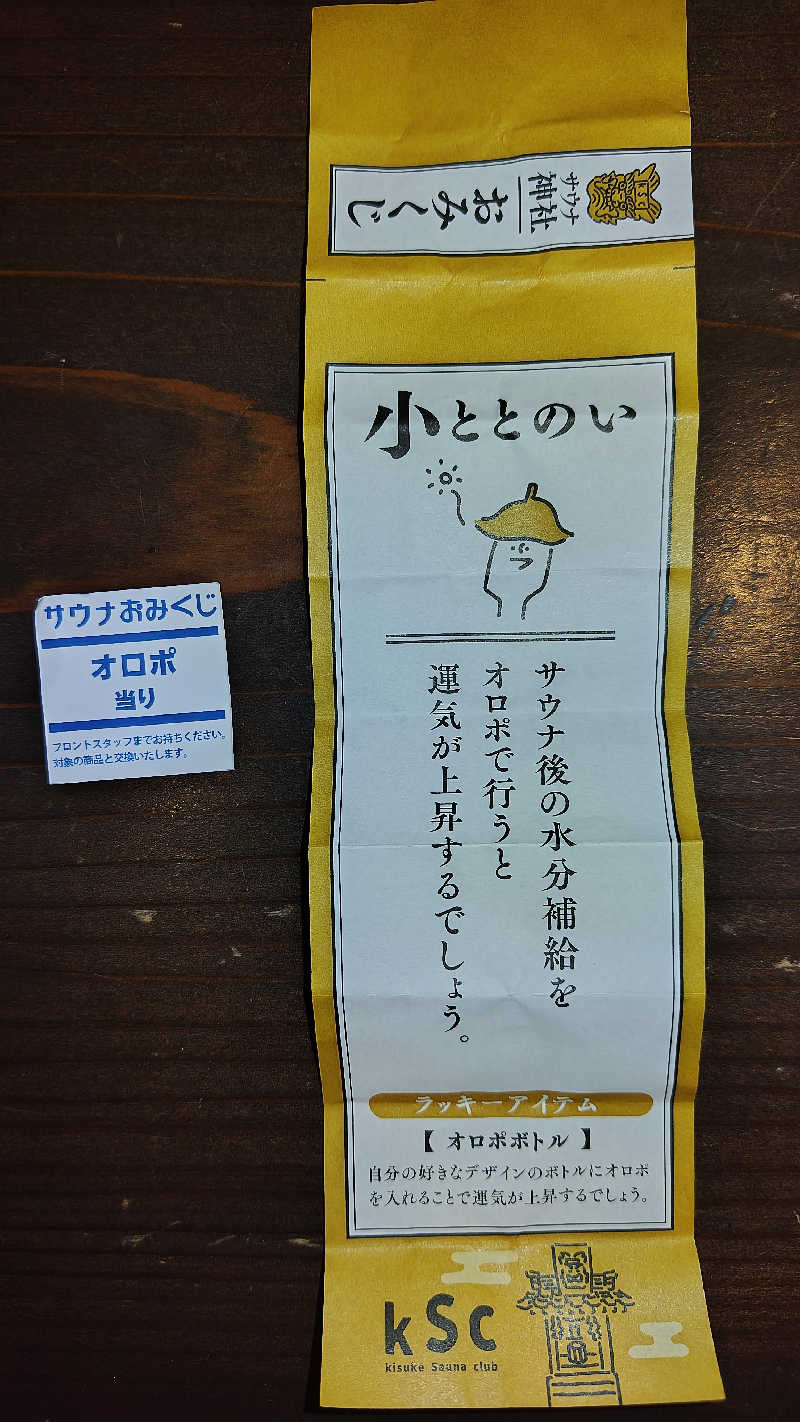 サウナ
神社
おみくじ
小ととのい
サウナ後の水分補給を
オロポで行うと
運気が上昇するでしょう。
ラッキーアイテム
【オロポボトル】
自分の好きなデザインのボトルにオロポ
を入れることで運気が上昇するでしょう。
kSc
kisuke Sauna club
サウナおみくじ
オロポ
当り
フロントスタッフまでお持ちください。
対象の商品と交換いたします。